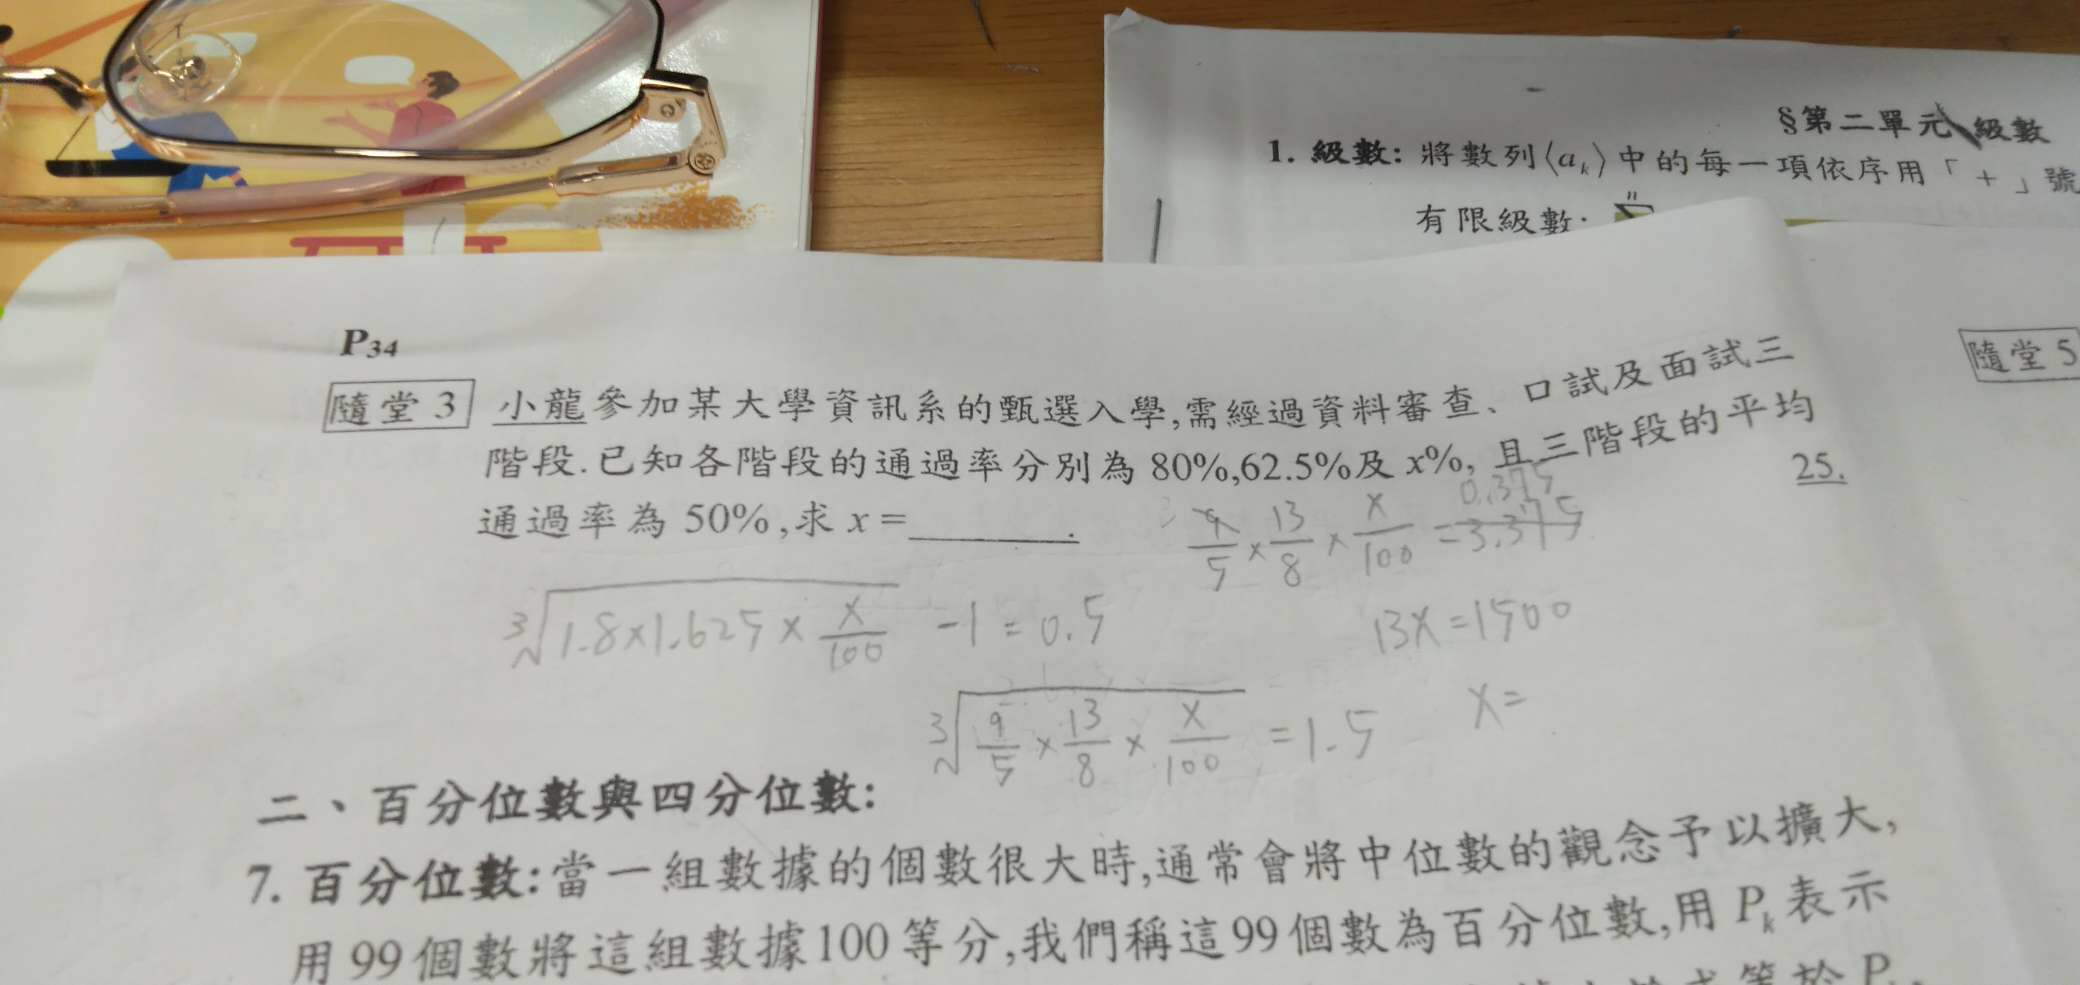 §第二單元 級數
1. 級數: 將數列⟨aₖ⟩中的每一項依序用「+」號
有限級數:
P34
隨堂 3 小龍參加某大學資訊系的甄選入學,需經過資料審查、口試及面試三
階段.已知各階段的通過率分別為 80%,62.5%及 x%, 且三階段的平均
通過率為 50%,求 x = ________.
25.
隨堂 5
9/5 × 13/8 × x/100 = 3.375
0.375
∛(1.8×1.625×x/100) -1 = 0.5
13x=1500
∛(9/5 × 13/8 × x/100) = 1.5
x=
二、百分位數與四分位數:
7. 百分位數:當一組數據的個數很大時,通常會將中位數的觀念予以擴大,
用 99 個數將這組數據100 等分,我們稱這99個數為百分位數,用 Pₖ 表示